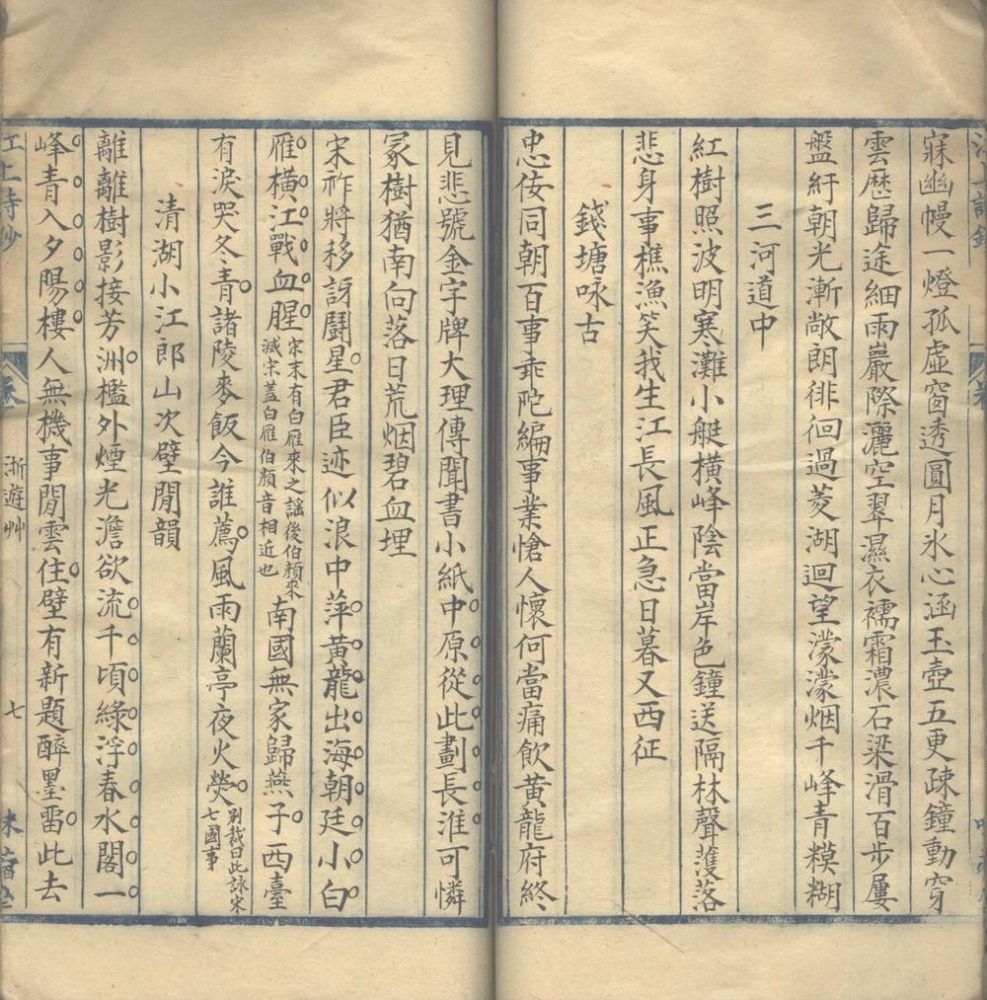 寐幽幔一燈孤虛窗透圓月氷心涵玉壺五更疎鐘動穿
雲歷歸途細雨巖際灑空翠濕衣襦霜濃石梁滑百步屢
盤紆朝光漸敞朗徘徊過菱湖迴望濛濛烟千峰青糢糊
三河道中
紅樹照波明寒灘小艇横峰陰當岸色鐘送隔林聲蒦落
悲身事樵漁笑我生江長風正急日暮又西征
錢塘咏古
忠佞同朝百事乖陀編事業愴人懷何當痛飲黃龍府終
見悲號金字牌大理傳聞書小紙中原從此劃長淮可憐
冢樹猶南向落日荒烟碧血埋
宋祚將移訝鬭星君臣迹似浪中萍黃龍出海朝廷小白
雁橫江戰血腥宋末有白雁來之謡後伯顏來滅宋蓋白雁伯顏音相近也南國無家歸燕子西臺
有淚哭冬青諸陵麥飯今誰薦風雨蘭亭夜火熒別裁曰此詠宋七國事
清湖小江郎山次壁閒韻
離離樹影接芳洲檻外煙光澹欲流千頃綠浮春水閣一
峰青入夕陽樓人無機事閒雲住壁有新題醉墨畱此去
江上詩鈔
浙遊艸
七